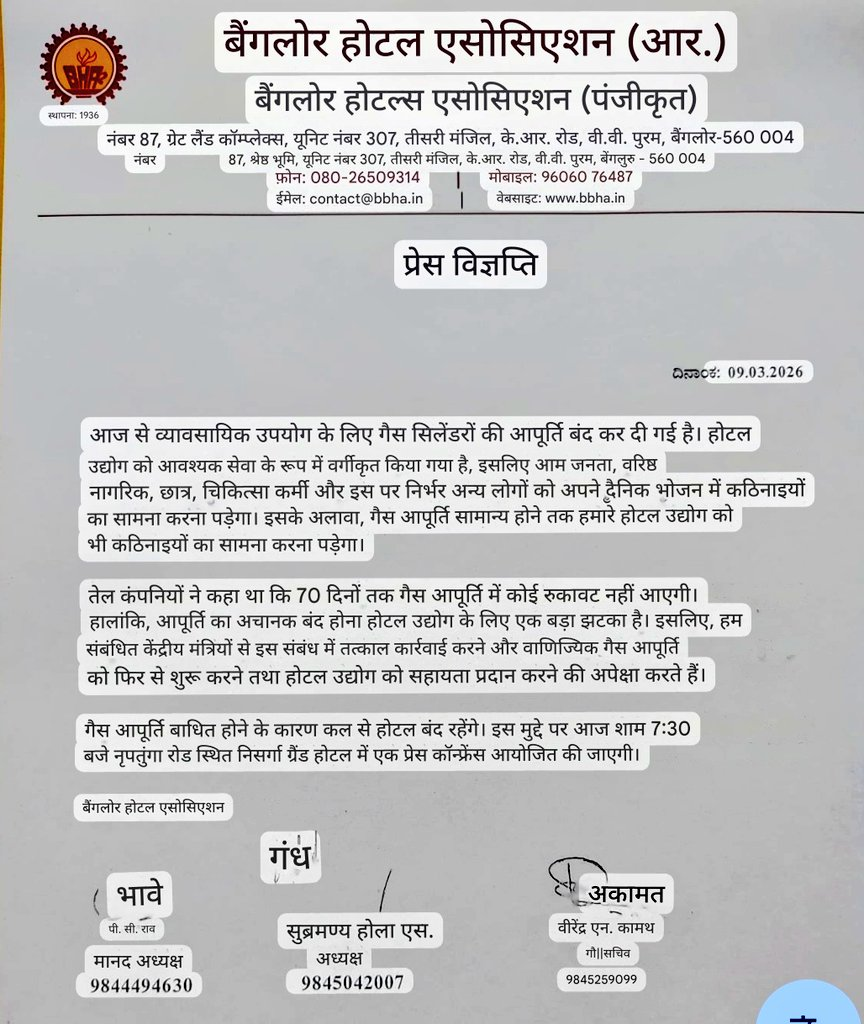 बैंगलोर होटल एसोसिएशन (आर.)
BBHA
स्थापना: 1936
बैंगलोर होटल्स एसोसिएशन (पंजीकृत)
नंबर 87, ग्रेट लैंड कॉम्प्लेक्स, यूनिट नंबर 307, तीसरी मंजिल, के.आर. रोड, वी.वी. पुरम, बैंगलोर-560 004
नंबर 87, श्रेष्ठ भूमि, यूनिट नंबर 307, तीसरी मंजिल, के.आर. रोड, वी.वी. पुरम, बेंगलुरु - 560 004
फ़ोन: 080-26509314 | मोबाइल: 96060 76487
ईमेल: contact@bbha.in | वेबसाइट: www.bbha.in
प्रेस विज्ञप्ति
ದಿನಾಂಕ: 09.03.2026
आज से व्यावसायिक उपयोग के लिए गैस सिलेंडरों की आपूर्ति बंद कर दी गई है। होटल
उद्योग को आवश्यक सेवा के रूप में वर्गीकृत किया गया है, इसलिए आम जनता, वरिष्ठ
नागरिक, छात्र, चिकित्सा कर्मी और इस पर निर्भर अन्य लोगों को अपने दैनिक भोजन में कठिनाइयों
का सामना करना पड़ेगा। इसके अलावा, गैस आपूर्ति सामान्य होने तक हमारे होटल उद्योग को
भी कठिनाइयों का सामना करना पड़ेगा।
तेल कंपनियों ने कहा था कि 70 दिनों तक गैस आपूर्ति में कोई रुकावट नहीं आएगी।
हालांकि, आपूर्ति का अचानक बंद होना होटल उद्योग के लिए एक बड़ा झटका है। इसलिए, हम
संबंधित केंद्रीय मंत्रियों से इस संबंध में तत्काल कार्रवाई करने और वाणिज्यिक गैस आपूर्ति
को फिर से शुरू करने तथा होटल उद्योग को सहायता प्रदान करने की अपेक्षा करते हैं।
गैस आपूर्ति बाधित होने के कारण कल से होटल बंद रहेंगे। इस मुद्दे पर आज शाम 7:30
बजे नृपतुंगा रोड स्थित निसर्गा ग्रैंड होटल में एक प्रेस कॉन्फ्रेंस आयोजित की जाएगी।
बैंगलोर होटल एसोसिएशन
गंध
भावे
अकामत
पी. सी. राव
सुब्रमण्य होला एस.
वीरेंद्र एन. कामथ
मानद अध्यक्ष
अध्यक्ष
गौ||सचिव
9844494630
9845042007
9845259099